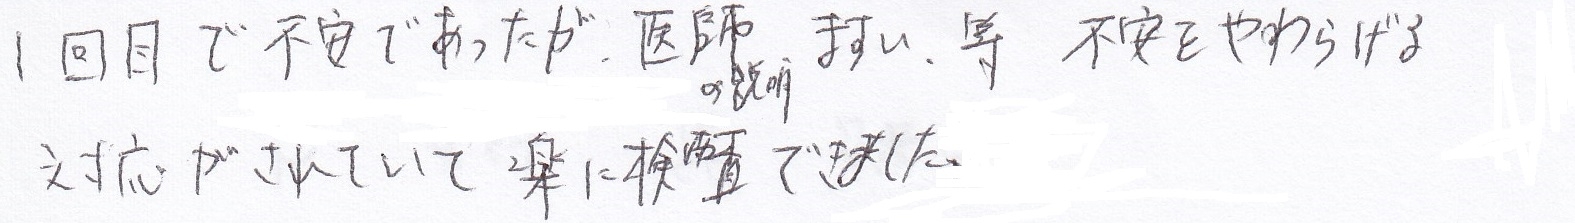 1回目で不安であったが、医師の説明、ますい、等 不安をやわらげる
対応がされていて楽に検査できました。